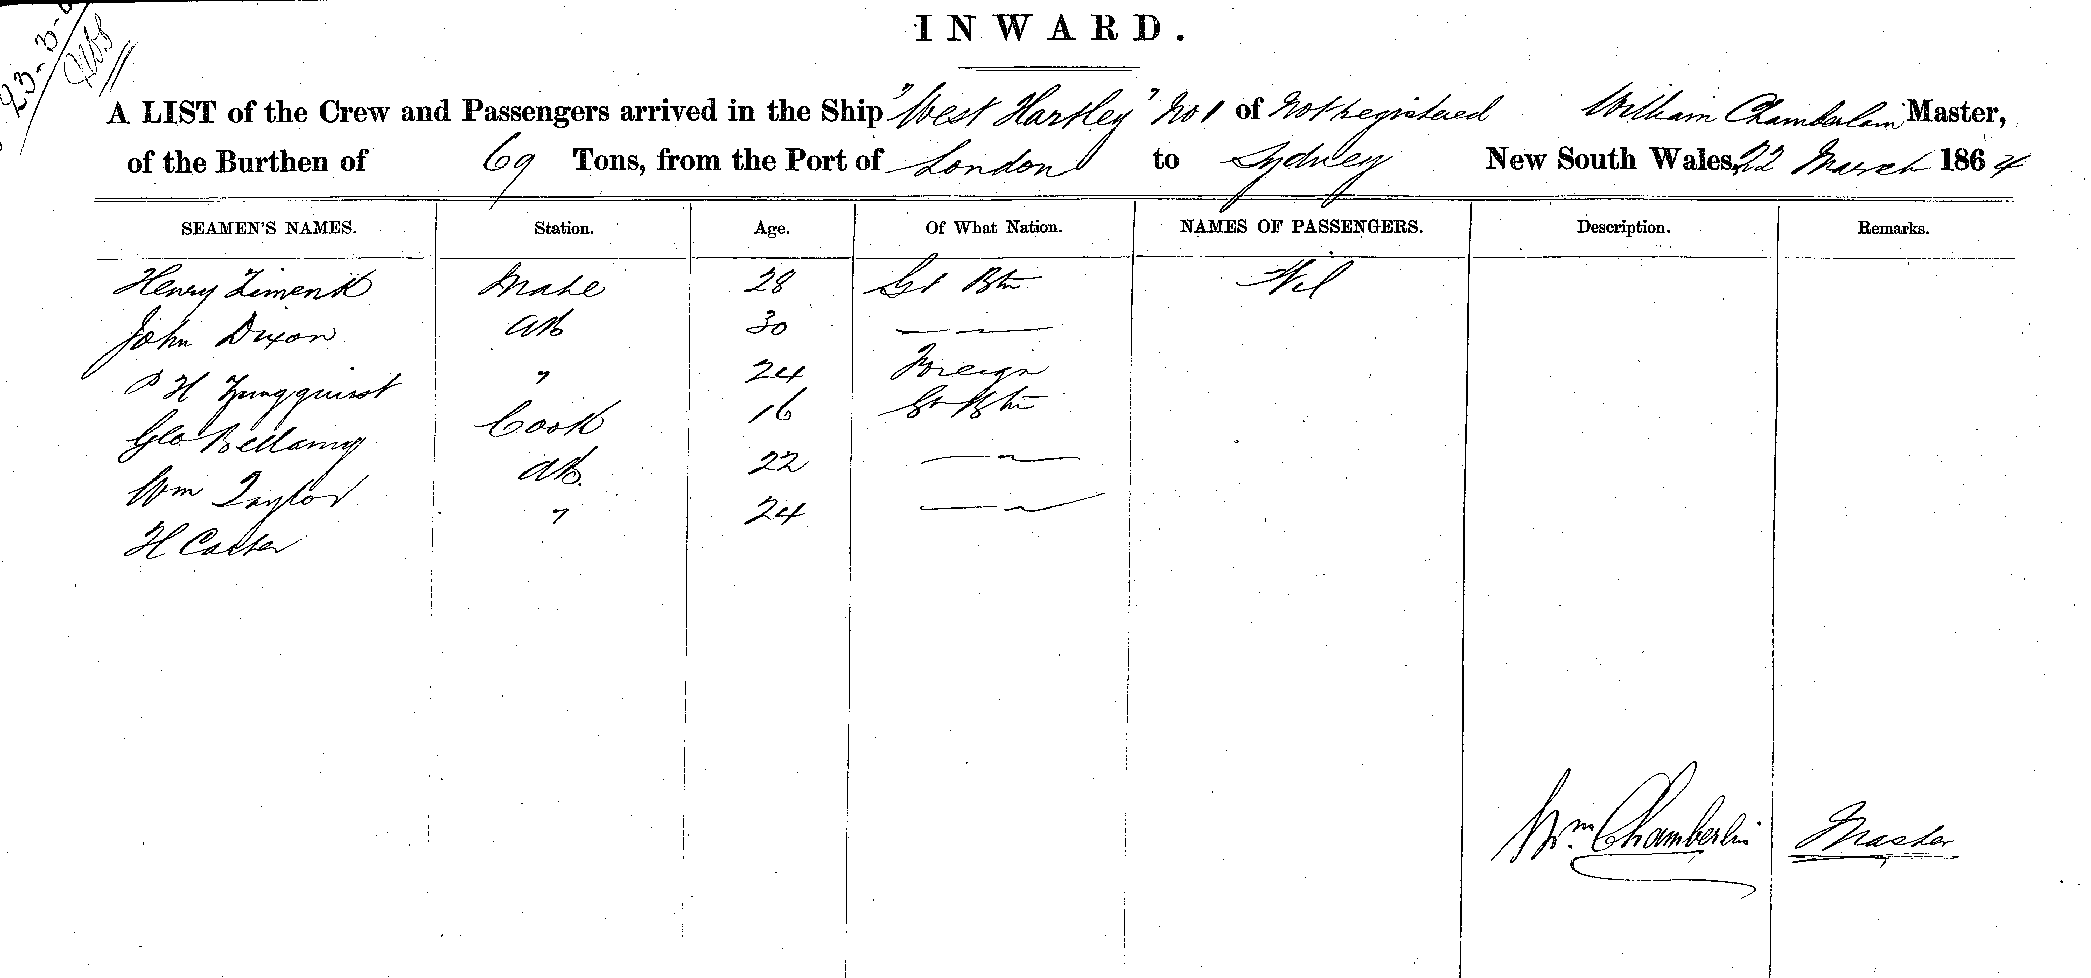 23-3-6
INWARD.
A LIST of the Crew and Passengers arrived in the Ship "West Hartley" No 1 of Not registered William Chamberlain Master,
of the Burthen of 69 Tons, from the Port of London to Sydney New South Wales, 22 March 1864
SEAMEN'S NAMES. Station. Age. Of What Nation. NAMES OF PASSENGERS. Description. Remarks.
Henry Liment Mate 28 Gt Btn Nil
John Dixon AB 30 — —
P H Ljungquist " 24 Foreign
Geo Bellamy Cook 16 Gt Btn
Wm Taylor AB. 22 — —
H Carter " 24 — —
Wm. Chamberlin Master